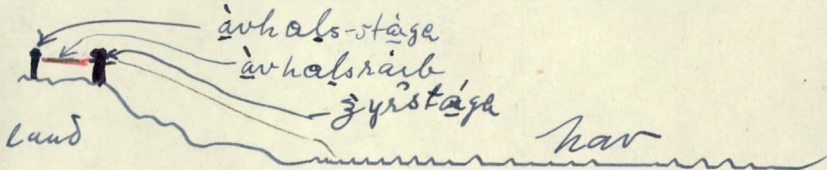 à̱vhaḻs-stà̱ga
à̱vhaḻsráib
ʒyrstá̱ga
land
hav